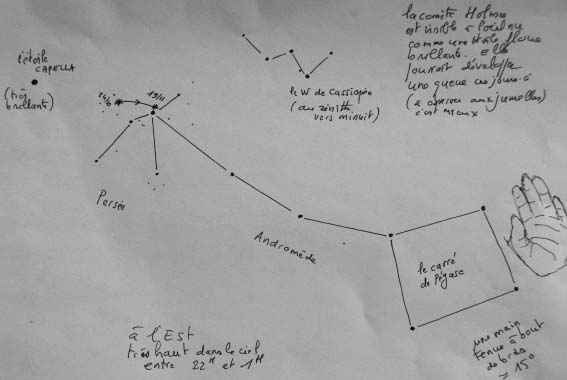 la comète Holmes
est visible à l'oeil nu
comme une étoile floue
brillante. elle
pourrait développer
une queue ces jours-ci
(à observer aux jumelles)
c'est mieux
l'étoile
CAPELLA
(très
brillante)
24/10
19/11
le W de Cassiopée
(au zénith
vers minuit)
Persée
Andromède
le carré
de Pégase
à l'Est
très haut dans le ciel
entre 22H et 1H
une main
tenue à bout
de bras
= 15°